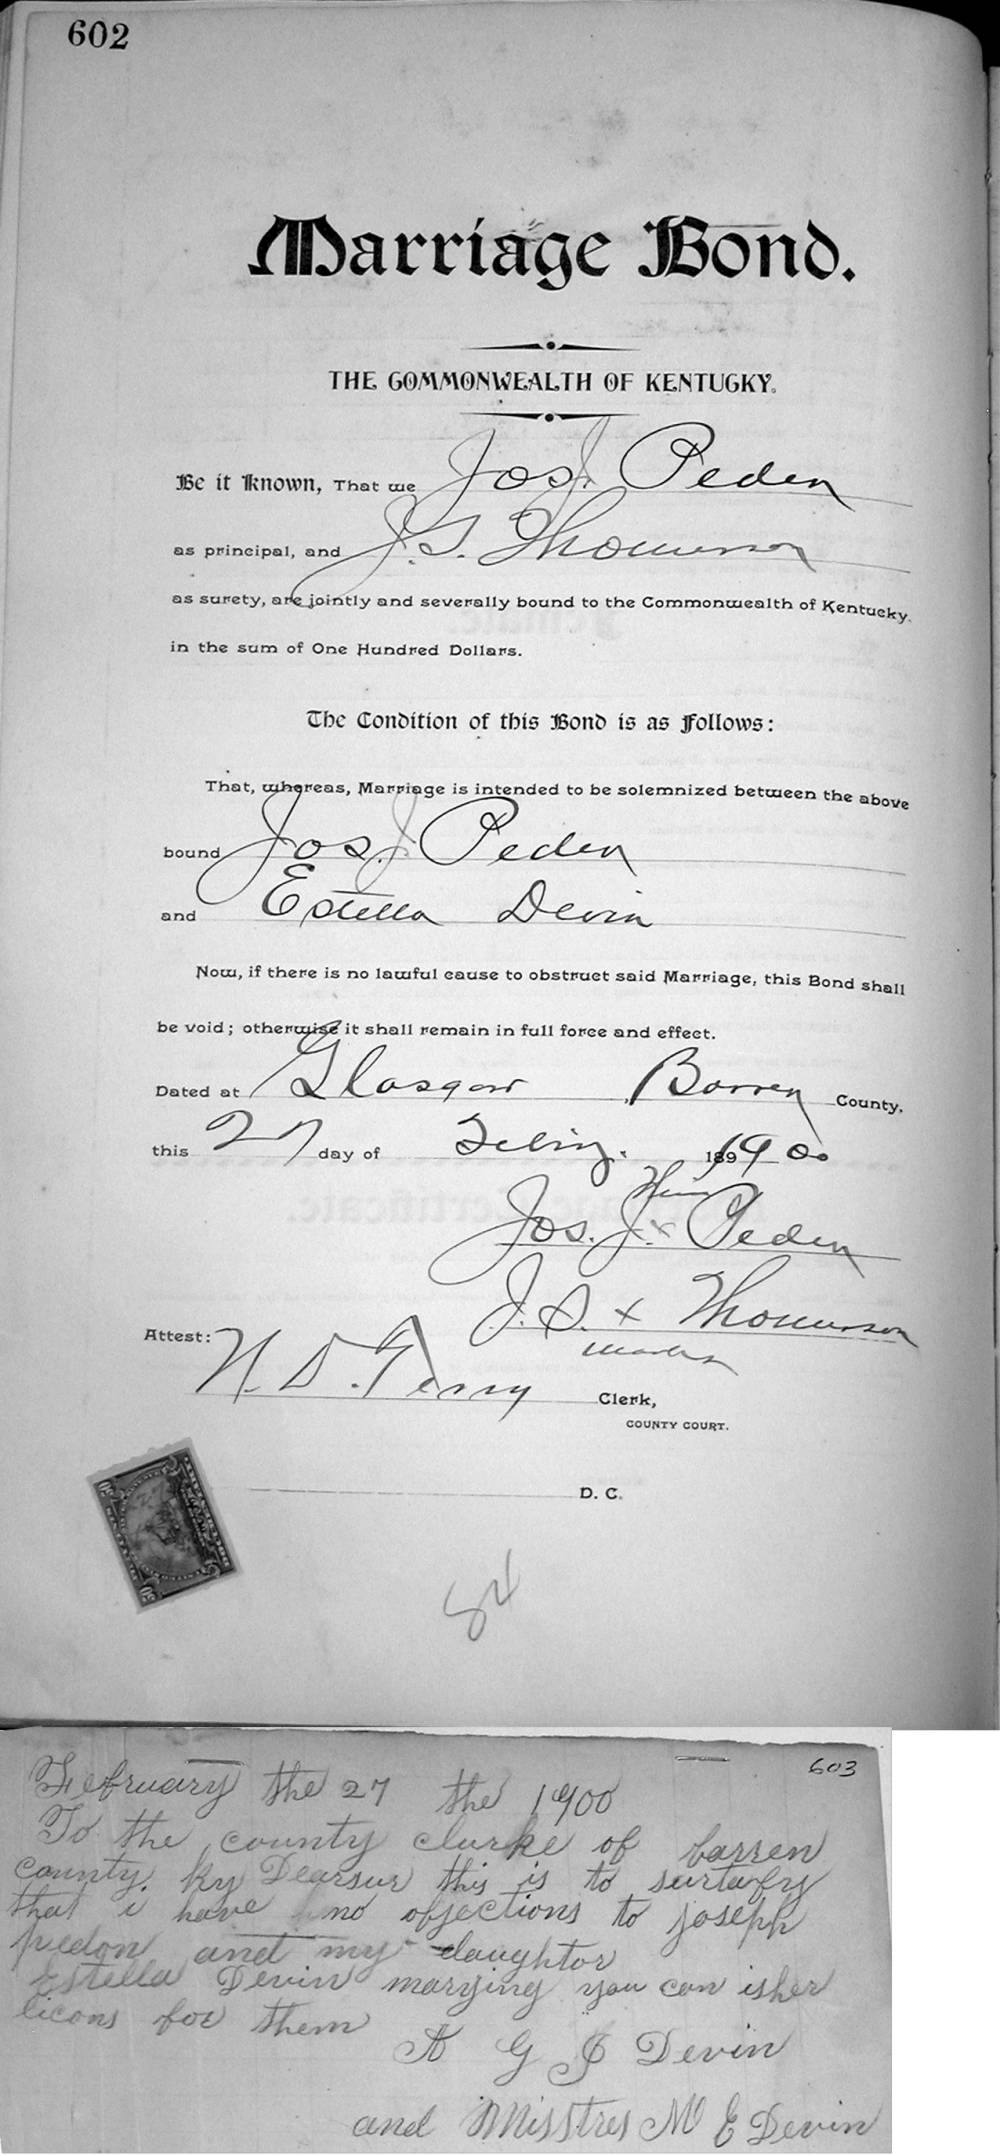 602
Marriage Bond.
THE COMMONWEALTH OF KENTUCKY.
Be it Known, That we Jos. J. Peden
as principal, and J. S. Thomerson
as surety, are jointly and severally bound to the Commonwealth of Kentucky,
in the sum of One Hundred Dollars.
The Condition of this Bond is as Follows:
That, whereas, Marriage is intended to be solemnized between the above
bound Jos. J Peden
and Estella Devin
Now, if there is no lawful cause to obstruct said Marriage, this Bond shall
be void; otherwise it shall remain in full force and effect.
Dated at Glasgow, Barren County,
this 27 day of Febry. 1900
His
Jos. J. x Peden
J. S. x Thomerson
marks
Attest:
Clerk,
COUNTY COURT.
D. C.
84
603
February the 27 the 1900
To the county clurke of barren
county ky Dearsur this is to surtafy
that i have no objections to joseph
pedon and my daughtor
Estella Devin marying you can isher
licons for them
A G J Devin
and Misstres M E Devin